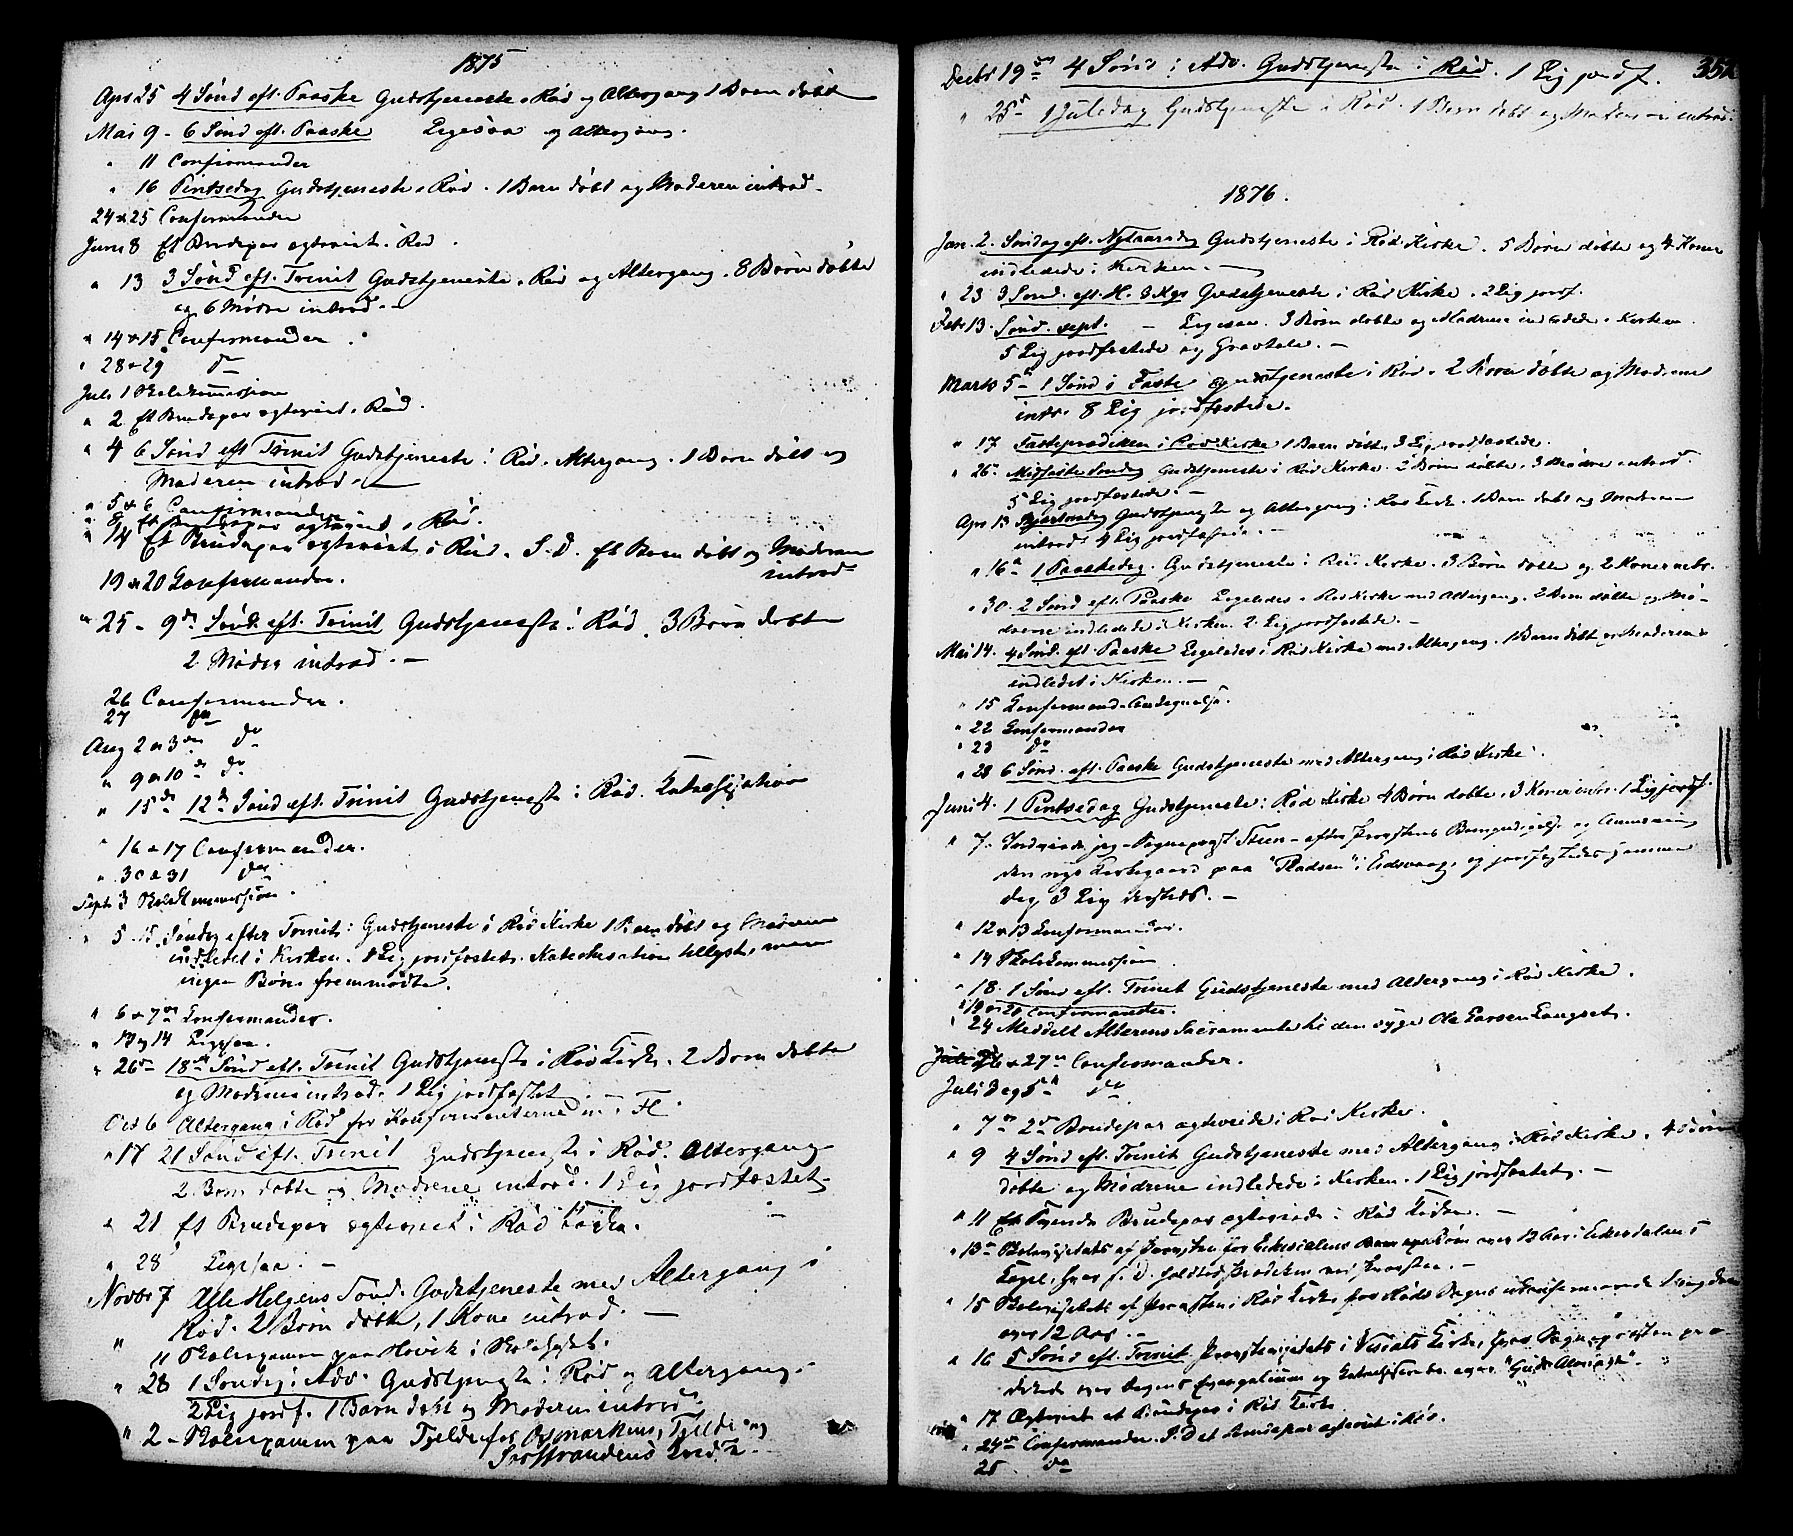 1875
Apr 25 4 Sønd eft. Paaske Gudstjeneste i Rød og Altergang 1 Barn døbt
Mai 9 - 6 Sønd eft. Paaske Ligesaa og Altergang.
" 11 Confirmander
" 16 Pintsedag Gudstjeneste i Rød. 1 Barn døbt og Moderen introd.
24 & 25 Confirmander
Juni 8 Et Brudepar egteviet i Rød.
" 13 3 Sønd eft. Trinit Gudstjeneste i Rød og Altergang. 8 Børn døbte
og 6 Mødre introd. -
" 14 & 15 Confirmander.
" 28 & 29 do
Juli 1 Skolekommission
" 2 Et Brudepar egteviet i Rød.
" 4 6 Sønd eft Trinit Gudstjeneste i Rød. Altergang. 1 Barn døbt og
Moderen introd. -
" 5 & 6 Confirmander
" 8 Et Brudepar egteviet i Rød.
" 14 Et Brudepar egteviet i Rød. S. D. Et Barn døbt og Moderen
introd
19 & 20 Confirmander.
" 25 - 9de Sønd. eft. Trinit Gudstjeneste i Rød. 3 Børn døbte
2 Mødre introd. -
26 Confirmander.
27 do
Aug 2 & 3 do
" 9 & 10 do
" 15 12 Sønd eft. Trinit Gudstjeneste i Rød. Katechisation
" 16 & 17 Confirmander.
" 30 & 31 do
Sept 3 Skolekommission.
" 5. 15. Søndag efter Trinit: Gudstjeneste i Rød Kirke 1 Barn døbt og Moderen
indledet i Kirken. 1 Lig jordfæstet. Katechisation tillyst, men
ingen Børn fremmødte.
" 6 & 7 Confirmander.
" 13 og 14 Ligesaa.
" 26 18 Sønd eft. Trinit Gudstjeneste i Rød Kirke. 2 Børn døbte
og Mødrene introd. 1 Lig jordfæstet. -
Oct 6 Altergang i Rød for Konfirmanterne m. Fl.
" 17 21 Sønd eft. Trinit Gudstjeneste i Rød. Altergang
2 Børn døbte og Mødrene introd. 1 Lig jordfæstet
" 21 Et Brudepar egteviet i Rød Kirke.
" 28 Ligesaa. -
Novbr 7 Alle Helgens Sønd. Gudstjeneste med Altergang i
Rød. 2 Børn døbte, 1 Kone introd. -
" 11 Skoleexamen paa Hovik i Skolehuset.
" 28 1 Søndag i Adv. Gudstjeneste i Rød og Altergang.
2 Lig jordf. 1 Barn døbt og Moderen introd.
" 2 - Skoleexamen paa Tjelde for Osmarkens, Tjelde og
Sørstrandens Kreds.
Decbr 19 4 Sønd i Adv. Gudstjeneste i Rød. 1 Lig jordf. 352
" 25 1 Juledag Gudstjeneste i Rød. 1 Barn døbt og Moderen introd.
1876.
Jan. 2. Søndag eft. Nytaarsdag Gudstjeneste i Rød Kirke. 5 Børn døbte og 4 Koner
indledede i Kirken. -
" 23 3 Sønd. eft. H. 3 Kgr Gudstjeneste i Rød Kirke. 2 Lig jordf.
Febr 13. Sønd. sept. - Ligesaa. 3 Børn døbte og Mødrene indledede i Kirken.
5 Lig jordfæstede og Gravtale. -
Marts 5 - 1 Sønd i Faste Gudstjeneste i Rød. 2 Børn døbte og Mødrene
intr. 8 Lig jordfæstede.
" 17 Fasteprædiken i Rød Kirke 1 Barn døbt. 3 Lig jordfæstede.
" 26. Midfaste Søndag Gudstjeneste i Rød Kirke. 2 Børn døbte. 3 Mødre introd.
5 Lig jordfæstede. -
Apr 13 Skjærtorsdag Gudstjeneste og Altergang i Rød Kirke. 1 Barn døbt og Moderen
introd. 4 Lig jordfæstede. -
" 16 1 Paaskedag. Gudstjeneste i Rød Kirke. 3 Børn døbte og 2 Koner intr.
" 30. 2 Sønd eft. Paaske Ligeledes i Rød Kirke med Altergang. 2 Børn døbte og Mø-
drene indledede i Kirken. 2 Lig jordfæstede. -
Mai 14. 4 Sønd. eft. Paaske Ligeledes i Rød Kirke med Altergang. 1 Barn døbt og Moderen
indledet i Kirken. -
" 15 Confirmand-Antegnelse.
" 22 Confirmander
" 23 do
" 28 6 Sønd. eft. Paaske Gudstjeneste med Altergang i Rød Kirke.
Juni 4. 1 Pintsedag Gudstjeneste i Rød Kirke 4 Børn døbte. 3 Koner intr. 1 Lig jordf.
" 7. Indviede jeg - Sogneprest Steen - efter Provstens Bemyndigelse og Anvisning
den nye Kirkegaard paa "Pladsen" i Eidsvaag, og jordfæstedes samme
Dag 3 Lig dersteds. -
" 12 & 13 Confirmander.
" 14 Skolekommission
" 18. 1 Sønd eft. Trinit Gudstjeneste med Altergang i Rød Kirke.
" 19 & 20 Confirmander.
" 24 Meddelt Alterens Sacramente til den syge Ole Larsen Langset.
26 & 27 Confirmander.
Juli 3 og 5 do
" 7 2 Brudepar egteviede i Rød Kirke.
" 9 4 Sønd eft. Trinit Gudstjeneste med Altergang i Rød Kirke. 4 Børn
døbte og Mødrene indledede i Kirken. 1 Lig jordfæstet. -
" 11 Brudepar egteviede i Rød Kirke. -
" 13 Skolevisitats af Provsten for Eikisdalens Børn over 12 Aar i Eikisdalens
Capel, hvor s. D. holdtes Prædiken ved Provsten. -
" 15 Skolevisitats af Provsten i Rød Kirke for Røds Sogns ukonfirmerede Ungdom
over 12 Aar. -
" 16 5 Sønd eft. Trinit Provstevisitats i Visdals Kirke, hvor Sognepresten præ-
dikede over Dagens Evangelium og katechiserede over "Guds Almagt".
" 17. Egteviet et Brudepar i Rød Kirke
" 24 Confirmander. S. D. et Brudepar egteviet i Rød.
25 do